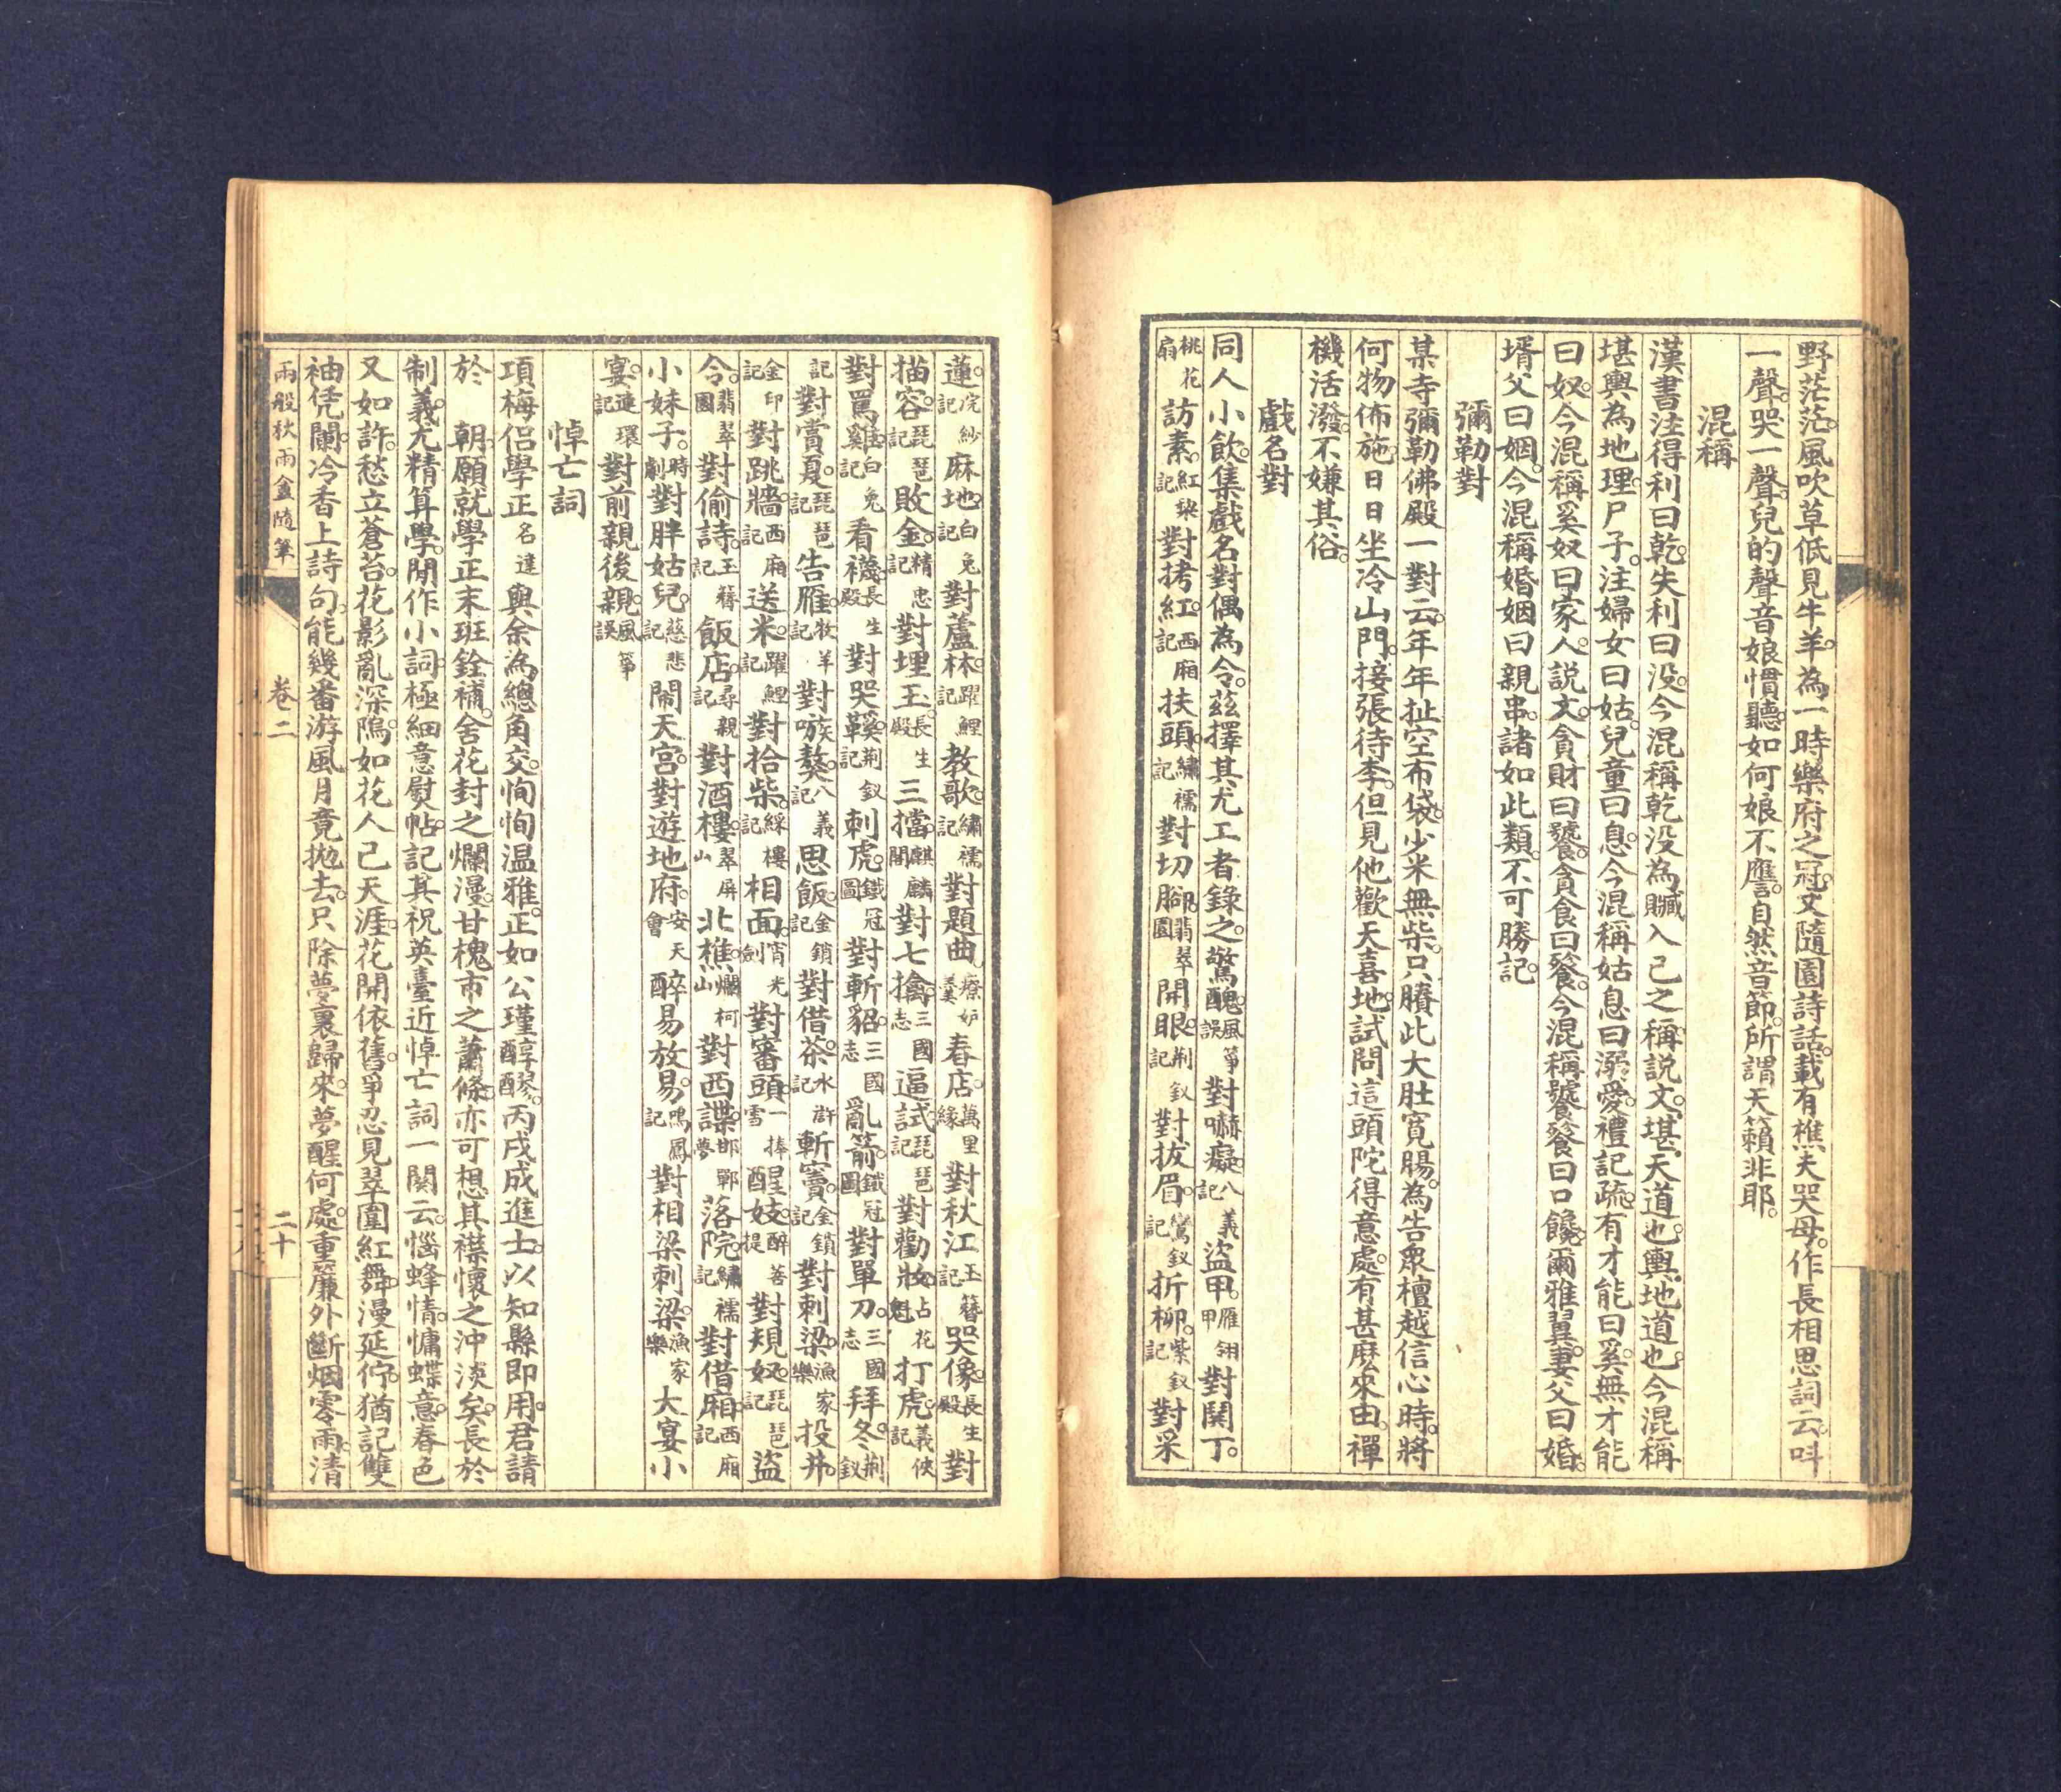 野茫茫。風吹草低見牛羊。為一時樂府之冠。文隨園詩話。載有樵夫哭母。作長相思詞云。叫
一聲。哭一聲。兒的聲音娘慣聽。如何娘不應。自然音節。所謂天籟非耶。
混稱
漢書注得利曰乾。失利曰没。今混稱乾没為贓入己之稱。説文。堪。天道也。輿。地道也。今混稱
堪輿為地理尸子。注婦女曰姑。兒童曰息。今混稱姑息曰溺愛。禮記疏。有才能曰奚。無才能
曰奴。今混稱奚奴曰家人。説文。貪財曰饕。貪食曰餮。今混稱饕餮曰口饞。爾雅翼。妻父曰婚。
壻父曰姻。今混稱婚姻曰親串。諸如此類。不可勝記。
彌勒對
某寺彌勒佛殿一對云。年年扯空布袋。少米無柴。只賸此大肚寛腸。為告衆檀越信心時。將
何物佈施。日日坐冷山門。接張待李。但見他歡天喜地。試問這頭陀得意處。有甚麽來由。禪
機活潑。不嫌其俗。
戲名對
同人小飲。集戲名對偶為令。茲擇其尤工者錄之。驚醜。風箏誤對嚇癡。八義記盜甲。雁翎甲對闖丁。
桃花扇訪素。紅梨記對拷紅。西廂記扶頭。繡襦記對切腳。翡翠園開眼。荆釵記對拔眉。鸞釵記折柳。紫釵記對采
蓮。浣紗記麻地。白兔記對蘆林。躍鯉記教歌。繡襦記對題曲。療妒羹春店。萬里緣對秋江。玉簪記哭像。長生殿對
描容。琵琶記敗金。精忠記對埋玉。長生殿三擋。麒麟閣對七擒。三國志逼試。琵琶記對勸妝。占花魁打虎。義俠記
對罵雞。白兔記看襪。長生殿對哭鞵。荆釵記刺虎。鐵冠圖對斬貂。三國志亂箭。鐵冠圖對單刀。三國志拜冬。荆釵
記對賞夏。琵琶記告雁。牧羊記對嗾獒。八義記思飯。金鎖記對借茶。水滸記斬竇。金鎖記對刺梁。漁家樂投井。
金印記對跳牆。西廂記送米。躍鯉記對拾柴。綵樓記相面。宵光劍對審頭。一捧雪醒妓。醉菩提對規奴。琵琶記盜
令。翡翠園對偷詩。玉簪記飯店。尋親記對酒樓。翠屏山北樵。爛柯山對西諜。邯鄲夢落院。繡襦記對借廂。西廂記
小妹子。時劇對胖姑兒。慈悲記鬧天宮。對遊地府。安天會醉易放易。鳴鳳記對相梁刺梁。漁家樂大宴小
宴。連環記對前親後親。風箏誤
悼亡詞
項梅侶學正名達與余為總角交。恂恂温雅。正如公瑾醇醪。丙戌成進士。以知縣即用。君請
於　朝。願就學正末班銓補。舍花封之爛漫。甘槐市之蕭條。亦可想其襟懷之沖淡矣。長於
制義。尤精算學。閒作小詞。極細意熨帖。記其祝英臺近悼亡詞一闋云。惱蜂情。慵蝶意。春色
又如許。愁立蒼苔。花影亂深隖。如花人已天涯。花開依舊。爭忍見翠圍紅舞。漫延佇。猶記雙
袖凭闌。冷香上詩句。能幾番游。風月竟拋去。只除夢裏歸來。夢醒何處。重簾外斷烟零雨。清
兩般秋雨盦隨筆　卷二　二十